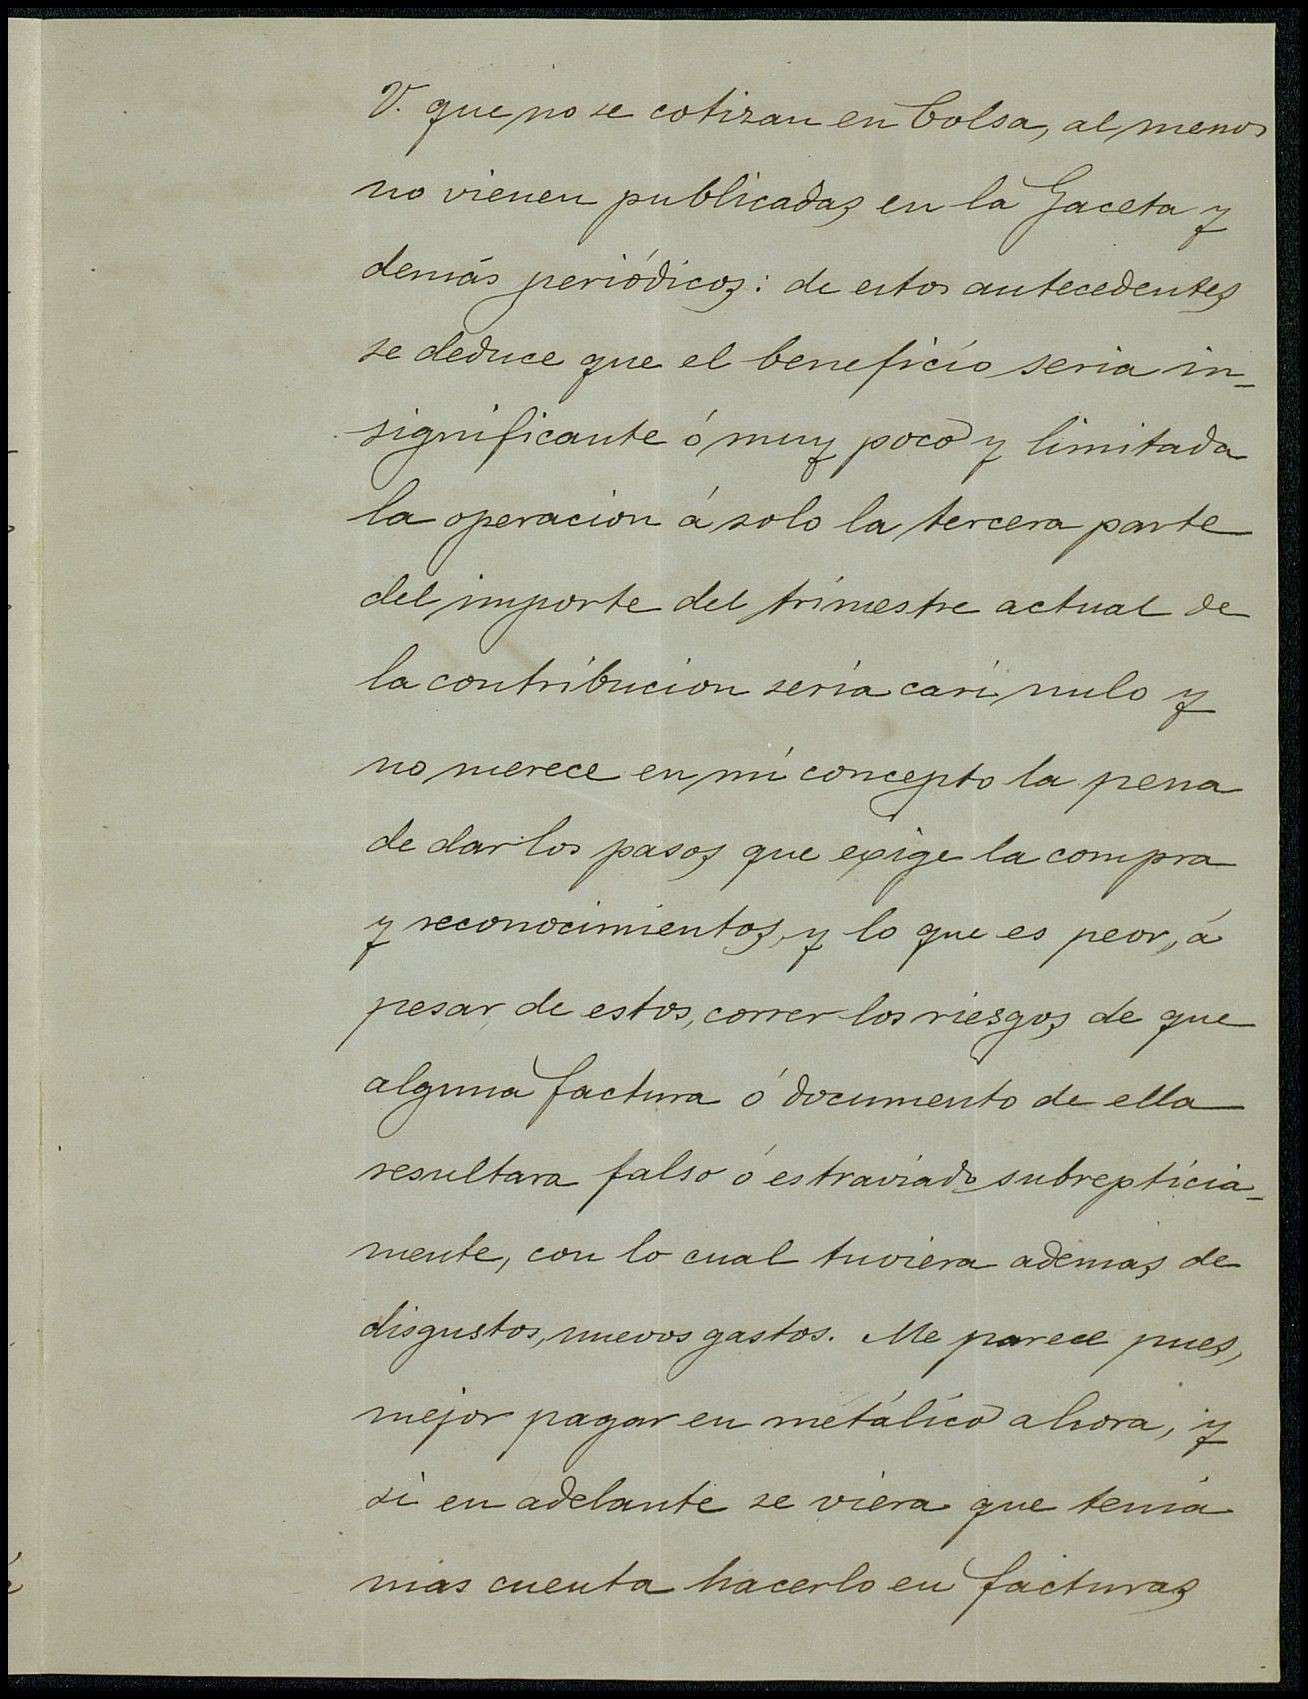 V. que no se cotizan en bolsa, al menos
no vienen publicadas en la Gaceta y
demás periódicos: de estos antecedentes
se deduce que el beneficio seria in-
significante ó muy poco y limitada
la operacion á solo la tercera parte
del importe del trimestre actual de
la contribucion sería casi nulo y
no merece en mi concepto la pena
de dar los pasos que exige la compra
y reconocimientos, y lo que es peor, á
pesar de estos, correr los riesgos de que
alguna factura ó documento de ella
resultara falso ó estraviado subrepticia-
mente, con lo cual tuviera ademas de
disgustos, nuevos gastos. Me parece pues,
mejor pagar en metálico ahora, y
si en adelante se viera que tenia
mas cuenta hacerlo en facturas